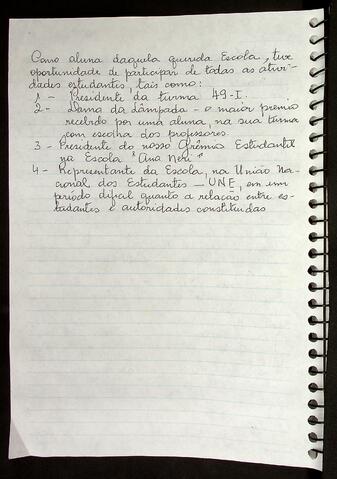 Como aluna daquela querida Escola, tive
oportunidade de participar de todas as ativi-
dades estudantis, tais como:
1 - Presidente da turma 49-I.
2 - Dama da Lâmpada - o maior premio
recebido por uma aluna, na sua turma
com escolha dos professores.
3 - Presidente do nosso Grêmio Estudantil
na Escola "Ana Neri"
4 - Representante da Escola, na União Na-
cional dos Estudantes - UNE, em um
período difícil quanto a relação entre es-
tudantes e autoridades constituidas